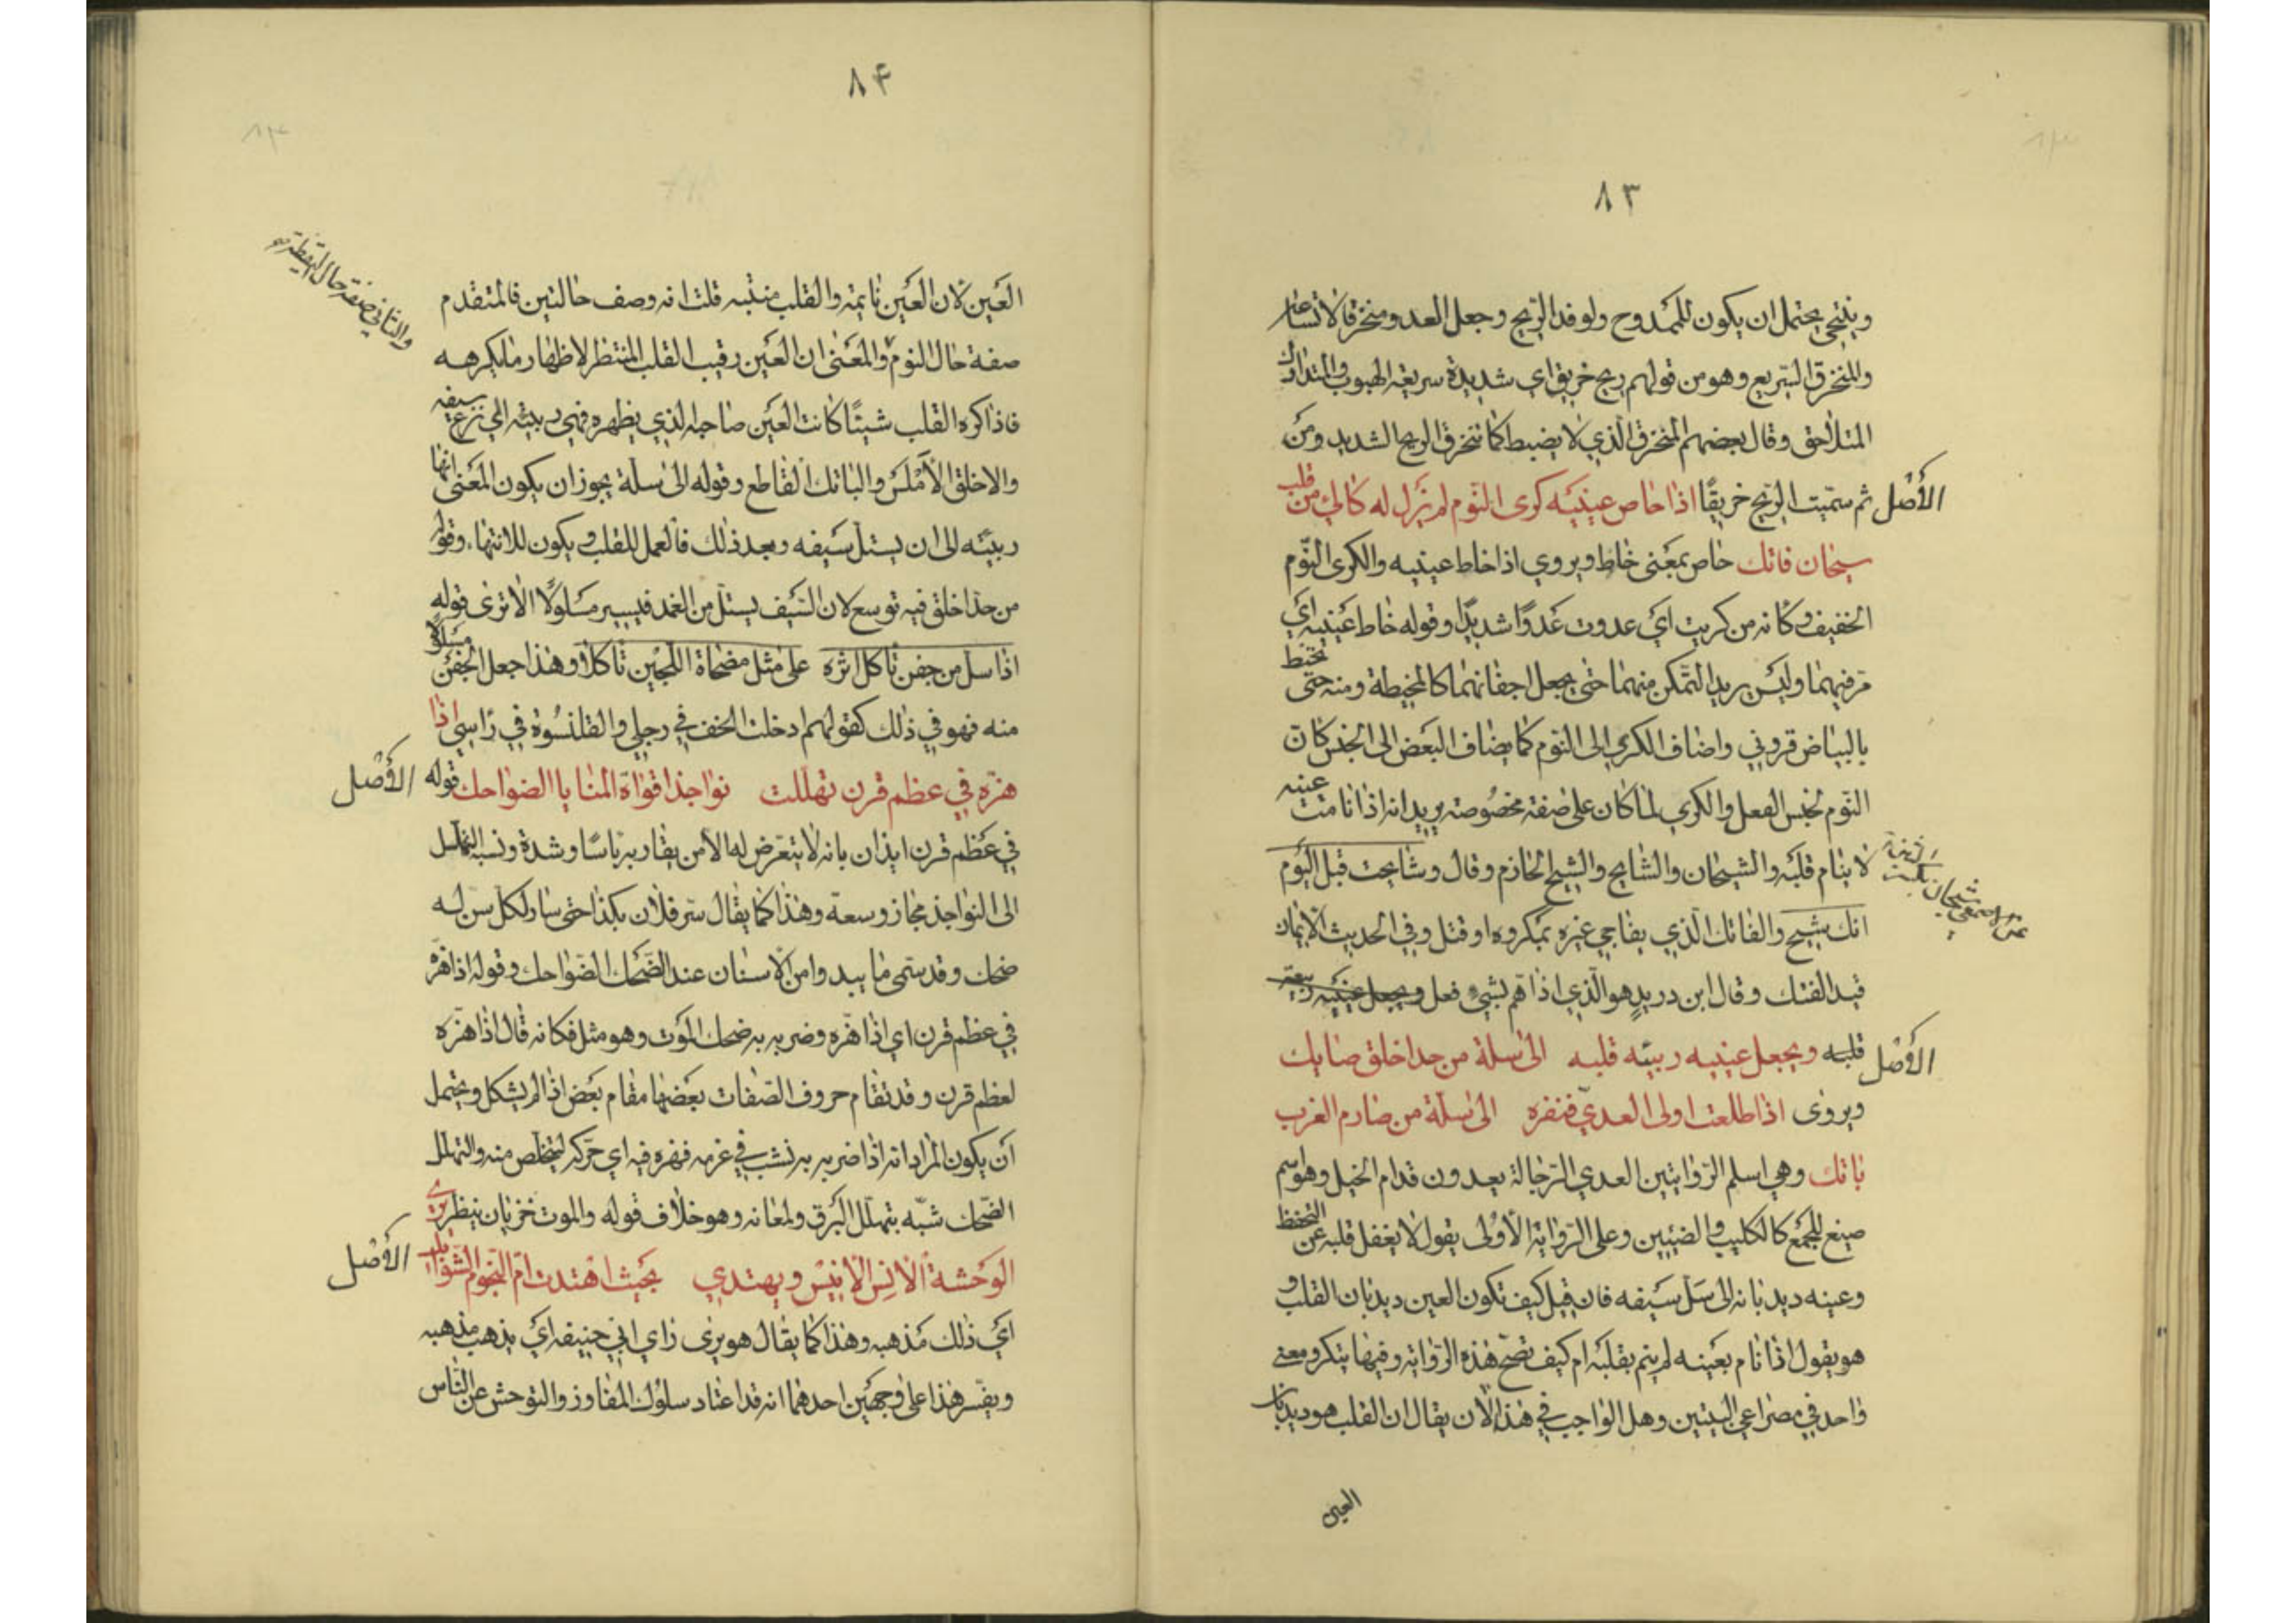 ٨٣
وينتحي يحتمل ان يكون للممدوح ولوفد الريح وجعل العدو منخرقا لاتساعه
والمنخرق السّريع وهو من قولهم ريح خريق اي شديدة سريعة الهبوب والمتدارك
المتلاحق وقال بعضهم المنخرق الّذي لا يضبط كما تنخرق الريح الشديد ومن
الأصْل
ثم سمّيت الريح خريقًا اذا خاص عينيْه كرى النّوم لم يزل له كالئ من قلب
سيحان فاتك خاص بمعنى خاط ويروي اذا خاط عينيه والكرى النّوم
الخفيف وكانه من كريت ايْ عدوت عَدوًا شديدًا وقوله خاط عَينيه ايْ
مرّ فيهما وليْس يريد التمّكن منهما حتى يجعل اجفانهما كالمخيطة ومنه حتى تخيّط
بالبياض قروني واضاف الكرى الى النوم كما يضاف البَعض الى الجنس كانّ
النّوم لجنس الفعل والكري لما كان على صفة مخصُوصة يريد انه اذا نامت عينه
لا ينام قلبُه والشيحان والشايح والشيح الحازم وقال وشايحت قبل اليَوم
عن الاصمعي شيحان
انك شيح والفاتك الّذي يفاجي غيره بمكروه او قتل وفي الحديث الايمان
قيد الفتك وقال ابن دريد هو الّذي اذا همّ بشيء فعل ويجعل عينيْه ربيّة
الأصْل
قلبه ويجعل عينيه ربيّه قلبه الى سلة من حد اخلق صايك
ويروى اذا طلعت اولى العديّ فنفره الى سلّة من صارم الغرب
باتك وهي اسلم الرّوايتين العدي الرّجالة يعدون قدام الخيل وهو اسم
صيغ للجَمْع كالكليب والضئين وعلى الرّواية الأولى يقول لا يغفل قلبه عن التحفّظ
وعينه ديدبانه الى سَلّ سَيفه فان قيل كيف تكون العين ديدبان القلب و
هو يقول اذا نام بعَينه لم ينم بقلبَه ام كيف تصحّ هذه الرّواية وفيها يتكرر معنى
واحد في مصراعي البيتين وهل الواجب في هذا الا ان يقال ان القلب هو ديدبان
العين
٨۴
العَين لان العَين نايمة والقلب منتبه قلت انه وصف حالتين فالمتقدم
والثاني صفة حال اليقظة صح
صفة حال النوم والمعَنى ان العَين رقيب القلب المنتظر لاظهار ما يكرهه
فاذا كره القلب شيئًا كانت العَين صاحبه الذي يظهره فهي ربيئة الى نزع سيفه
والاخلق الأمْلسَ والباتك القاطع وقوله الى سلّة يجوز ان يكون المعَنى انها
ربيّئه الى ان يستلّ سَيفه وبعد ذلك فالعمل للقلب ويكون للانتهاء وقوله
من حدّ اخلق فيه توسع لان السَّيف يستلّ من الغمد فيسير مَسلولًا الا ترى قوله
اذا سل من جفن تاكل اثره على مثل مضحاة اللّجين تاكّلا وهذا جعل الجفن مَسلولًا
منه فهو في ذلك كقولهم ادخلت الخف في رجلي والقلنسُوة في راسي اذا
الأصْل
هزّه في عظم قرن تهلّلت نواجذ افواه المنايا الضواحك قوله
في عَظم قرن ايذان بانه لا يتعَرض له الا من يقاربه باسًا وشدة ونسبة التّهلل
الى النواجذ مجاز وسعة وهذا كما يقال سّر فلان بكذا حتى سار لكلّ سِنّ له
ضحك وقد سَمّى ما يبدوا من الاسنان عند الضّحك الضّواحك وقوله اذا هزّه
في عظم قرن اي اذا هزّه وضربه به ضحك الموَت وهو مثل فكانه قال اذا هزّه
لعظم قرن وقد تقام حروف الصّفات بعَضها مقام بعَض اذا لم يشكل ويحتمل
ان يكون المراد انه اذا ضربه به نشب في غرمه فهزه فيه اي حرّكه ليتخلّص منه والتهلل
الضّحك شبّه بتهلّل البَرق ولمعانه وهو خلاف قوله والموت خزيان ينظر يرى
الأصْل
الوَحشة الأنس الأنيْس ويهتدي بحَيث اهْتدت امّ النّجوم الشّوابك
ايْ ذلك مَذهبه وهذا كما يقال هو يرى راي ابي حنيفة ايْ يذهب مذهبه
ويفسّر هذا على وجهَين احدهما انه قد اعتاد سلوك المفاوز والتوحّش عن الناس